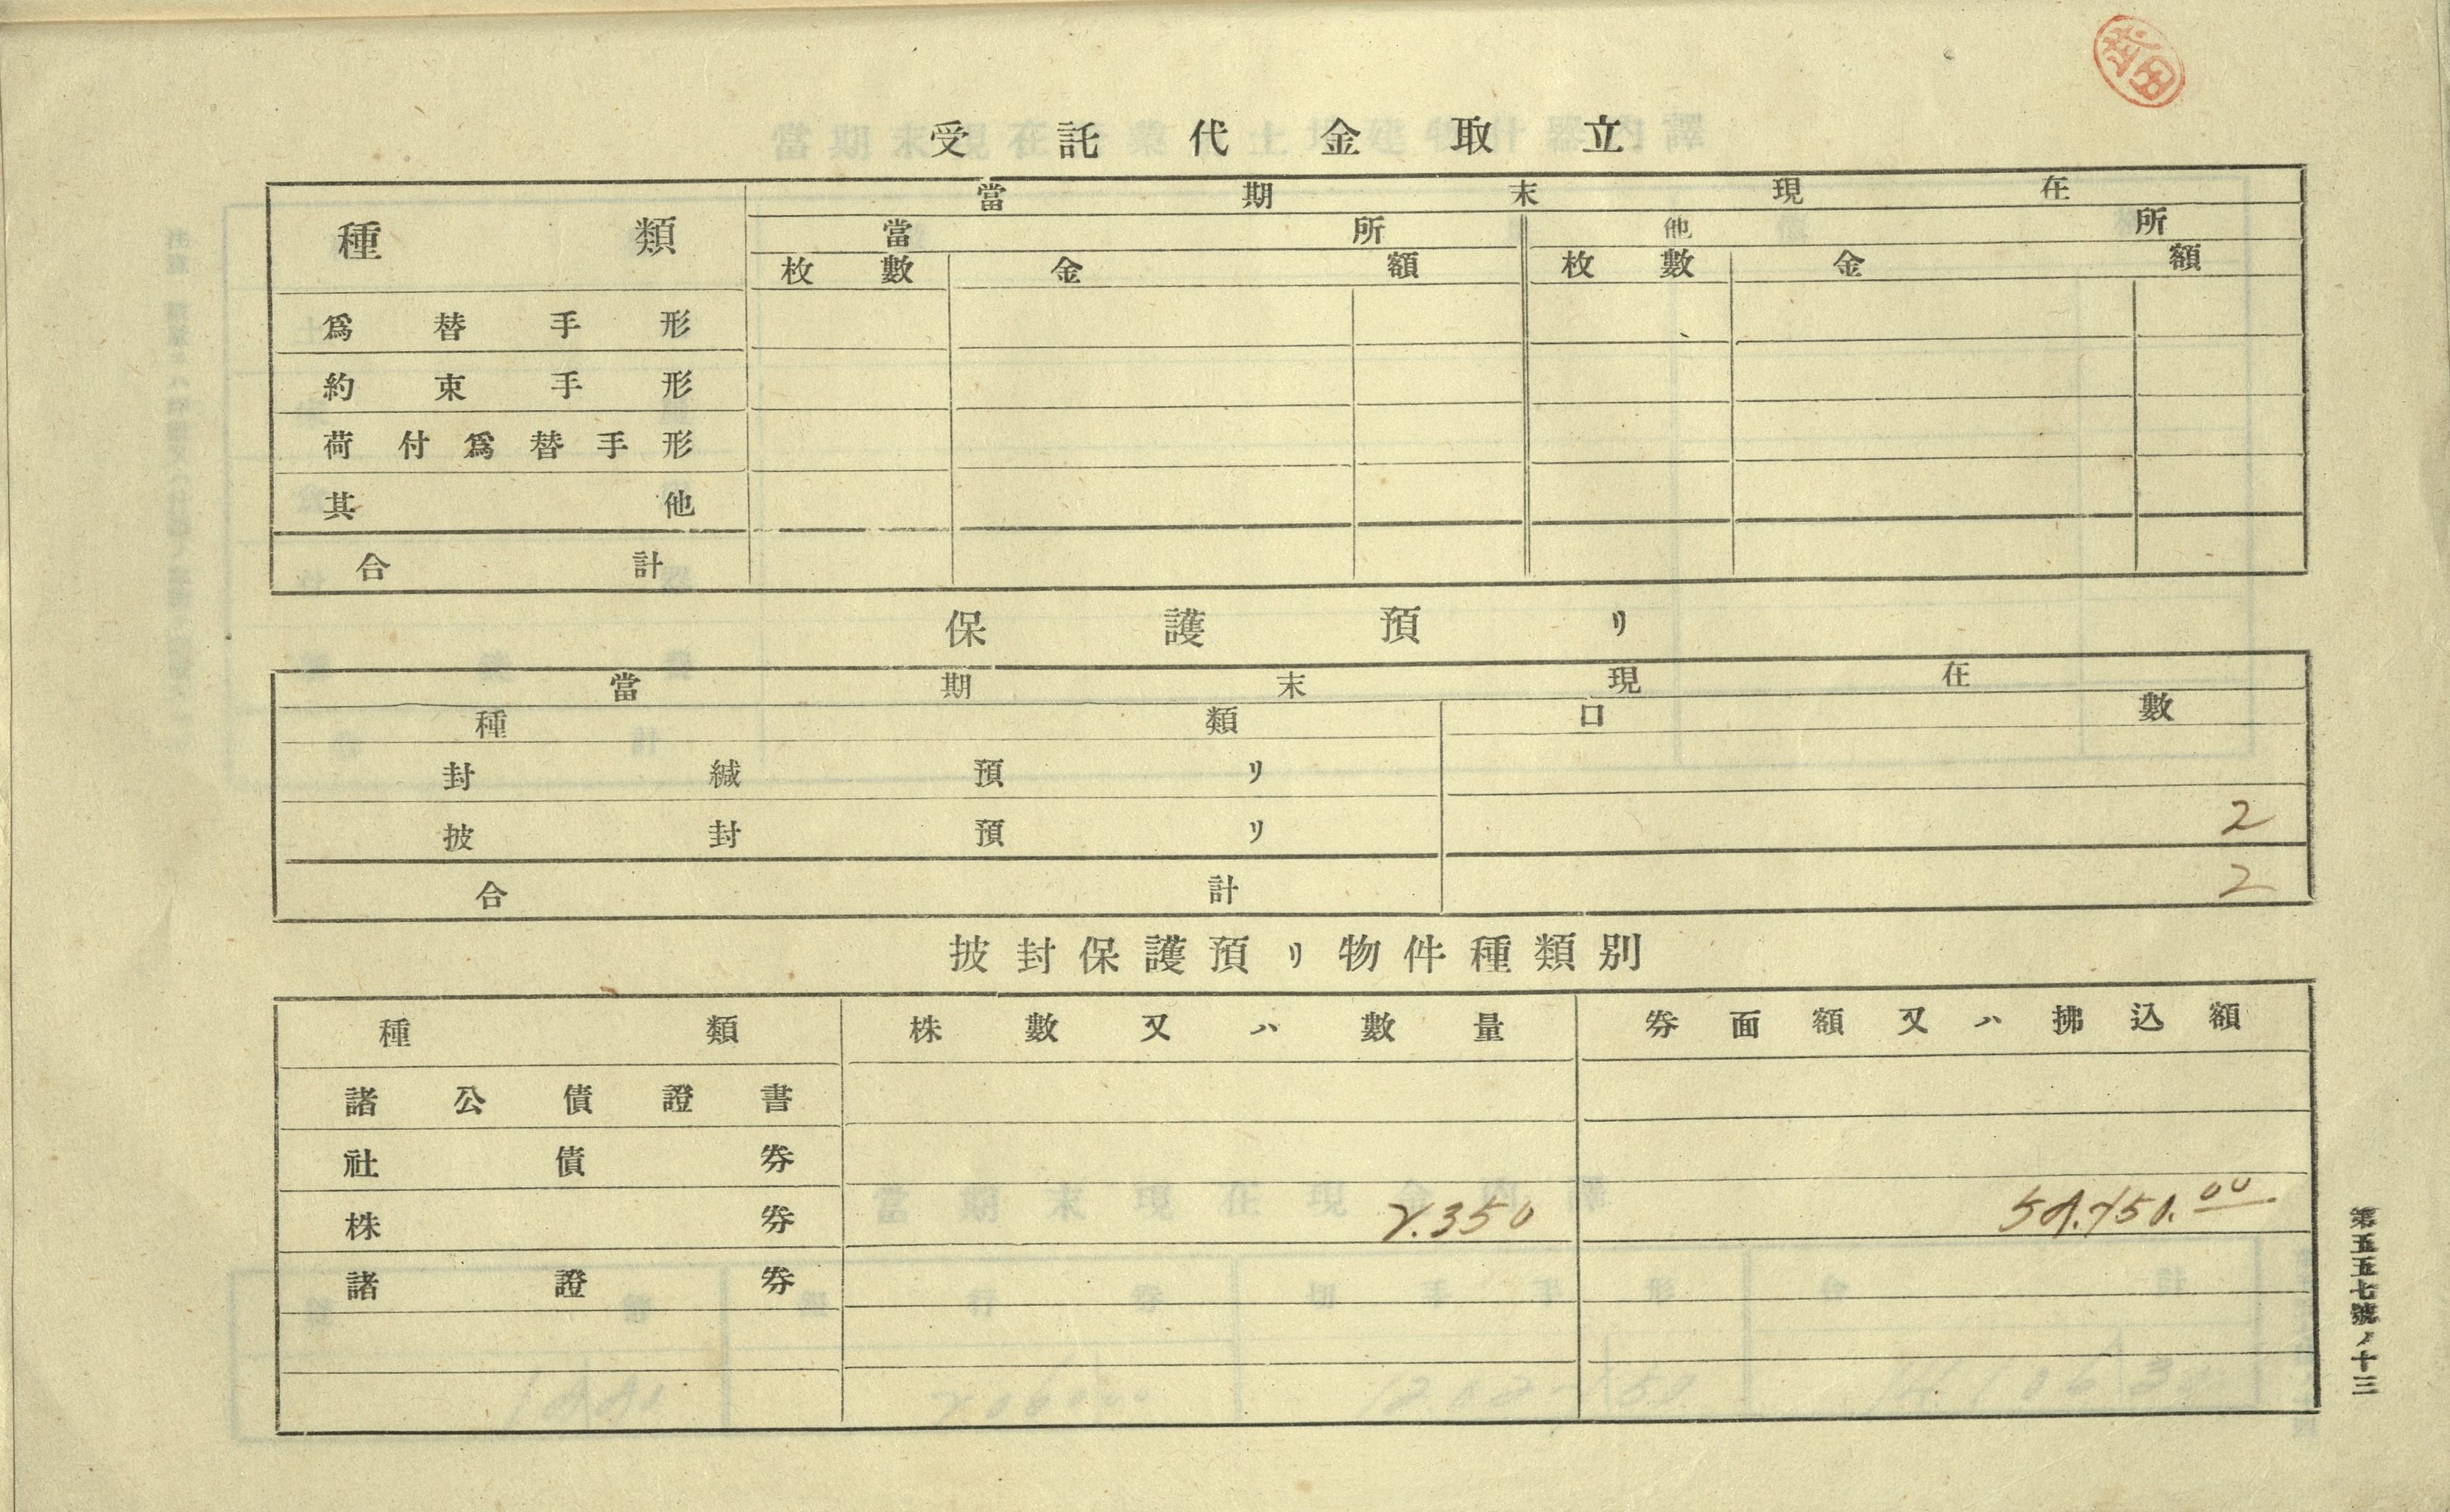 受託代金取立
種類 當期末現在
當所 他所
枚數 金額 枚數 金額
爲替手形
約束手形
荷付爲替手形
其他
合計
保護預リ
當期末現在
種類 口數
封緘預リ
披封預リ 2
合計 2
披封保護預リ物件種類別
種類 株數又ハ數量 券面額又ハ拂込額
諸公債證書
社債券
株券
諸證券
第五五七號ノ十三